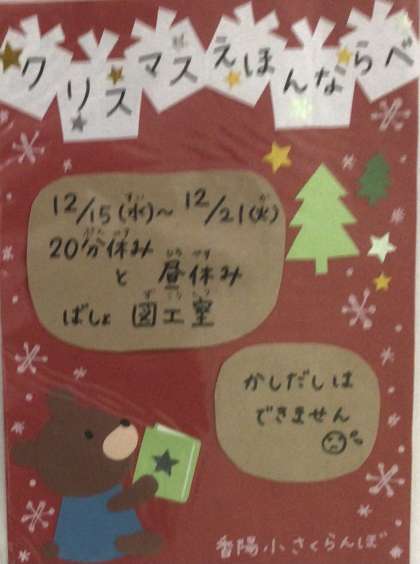 クリスマスえほんならべ
12/15(水)～12/21(火)
20分休み
と 昼休み
ばしょ 図工室
かしだしは
できません
香陽小さくらんぼ